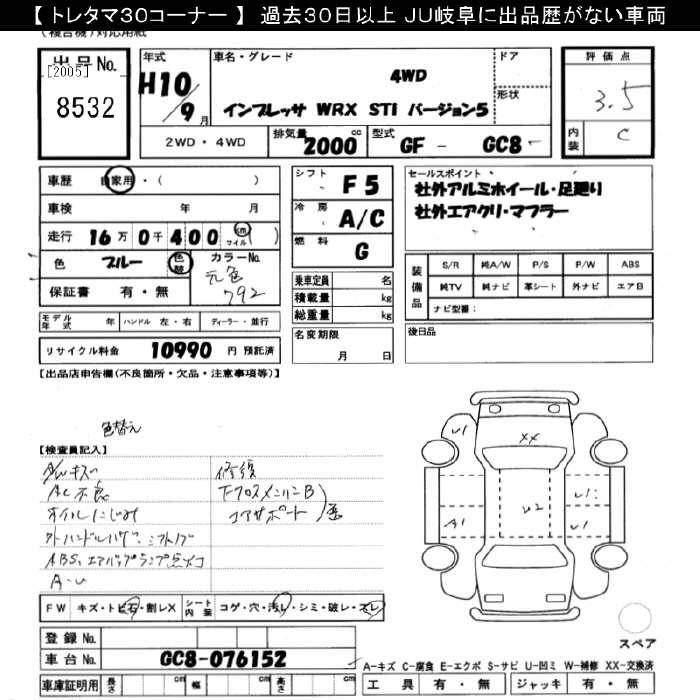 【 トレタマ30コーナー 】 過去30日以上 JU岐阜に出品歴がない車両
(複合機)対応用紙
出品 No.
[2005]
8532
年式
H10/9月
車名・グレード
4WD
インプレッサ WRX STI バージョン5
ドア
形状
評価点
3.5
内装
C
2WD・4WD
排気量
2000 cc
型式
GF - GC8 -
車歴
自家用・( )
車検 年 月
走行 16万0千400 km マイル ( )
色 ブルー 色替
カラーNo.
元色
792
保証書 有・無
シフト
F5
冷房
A/C
燃料
G
乗車定員 名
積載量 kg
総重量 kg
名変期限
月 日
セールスポイント
社外アルミホイール・足廻り
社外エアクリ・マフラー
装備品
S/R 純A/W P/S P/W ABS
純TV 純ナビ 革シート 外ナビ エアB
ナビ型番:
後日品
モデル年式 年 ハンドル 左・右 ディーラー・並行
リサイクル料金 10990 円 預託済
【出品店申告欄(不良箇所・欠品・注意事項等)】
色替え
【検査員記入】
A/Wキズ
AC不良
オイルにじみ
外ハンドル
ABS、エアバッグランプ点
A-U
修復
Fクロスメンバ
コアサポート
歪
XX
U1
U2
U1
A1
U1
FW キズ・トビ石・割レX
シート内装 コゲ・穴・汚レ・シミ・破レ・スレ
登録 No.
車台 No. GC8-076152
スペア
A-キズ C-腐食 E-エクボ S-サビ U-凹ミ W-補修 XX-交換済
車庫証明用 長さ cm 幅 cm 高さ cm
工具 有・無 ジャッキ 有・無